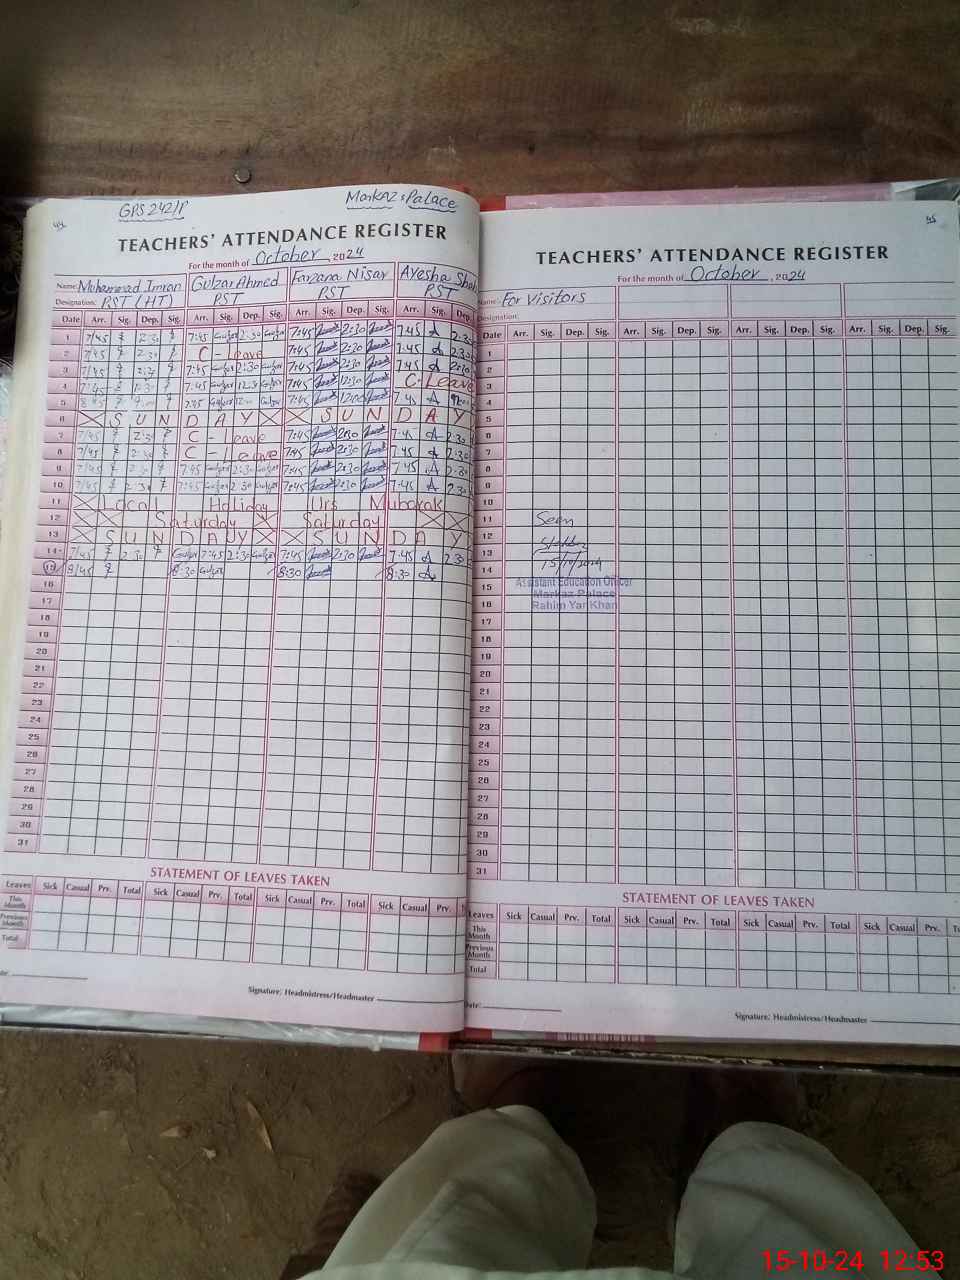 44
GPS 242/P
Markaz : Palace
TEACHERS' ATTENDANCE REGISTER
For the month of October, 2024
Name: Muhammad Imran Gulzar Ahmed Farzana Nisar Ayesha
Designation: PST (HT) PST PST PST
Date Arr. Sig. Dep. Sig. Arr. Sig. Dep. Sig. Arr. Sig. Dep. Sig. Arr. Sig. Dep.
1 7/45 2:30 7:45 Gulzar 2:30 Gulzar 7:45 2:30 7:45 A 2:30
2 7/45 2:30 C - Leave 7:45 2:30 7:45 A 2:30
3 7/45 7:45 Gulzar 2:30 Gulzar 7:45 2:30 7:45 A 2:30
4 7:45 7:45 Gulzar 12:30 Gulzar 7:45 12:30 C. Leave
5 7:45 Gulzar Gulzar 7:45 12:00 7:45 A
6 X S U N D A Y X X S U N D A Y
7 7/45 2:30 C - Leave 7:45 2:30 7:45 A 2:30
8 7/45 2:30 C - Leave 7:45 2:30 7:45 A 2:30
9 7/45 2:30 7:45 Gulzar 2:30 Gulzar 7:45 2:30 7:45 A 2:30
10 7/45 2:30 7:45 Gulzar 2:30 Gulzar 7:45 2:30 7:45 A 2:30
11 X Local Holiday Urs Mubarak
12 X X Saturday X Saturday X X
13 X S U N D A Y X X S U N D A Y
14 7/45 2:30 Gulzar 7:45 2:30 Gulzar 7:45 2:30 7:45 A 2:30
15 8/45 8:30 Gulzar 8:30 8:30 A
16
17
18
19
20
21
22
23
24
25
26
27
28
29
30
31
STATEMENT OF LEAVES TAKEN
Leaves Sick Casual Prv. Total Sick Casual Prv. Total Sick Casual Prv. Total Sick Casual Prv.
This Month
Previous Month
Total
Signature: Headmistress/Headmaster
45
TEACHERS' ATTENDANCE REGISTER
For the month of October, 2024
Name: For Visitors
Designation:
Date Arr. Sig. Dep. Sig. Arr. Sig. Dep. Sig. Arr. Sig. Dep. Sig. Arr. Sig. Dep. Sig.
1
2
3
4
5
6
7
8
9
10
11 Seen
12
13
14 15/10/2024
15 Assistant Education Officer
Markaz Palace
16 Rahim Yar Khan
17
18
19
20
21
22
23
24
25
26
27
28
29
30
31
STATEMENT OF LEAVES TAKEN
Leaves Sick Casual Prv. Total Sick Casual Prv. Total Sick Casual Prv. Total Sick Casual Prv.
This Month
Previous Month
Total
Date:
Signature: Headmistress/Headmaster
15-10-24 12:53